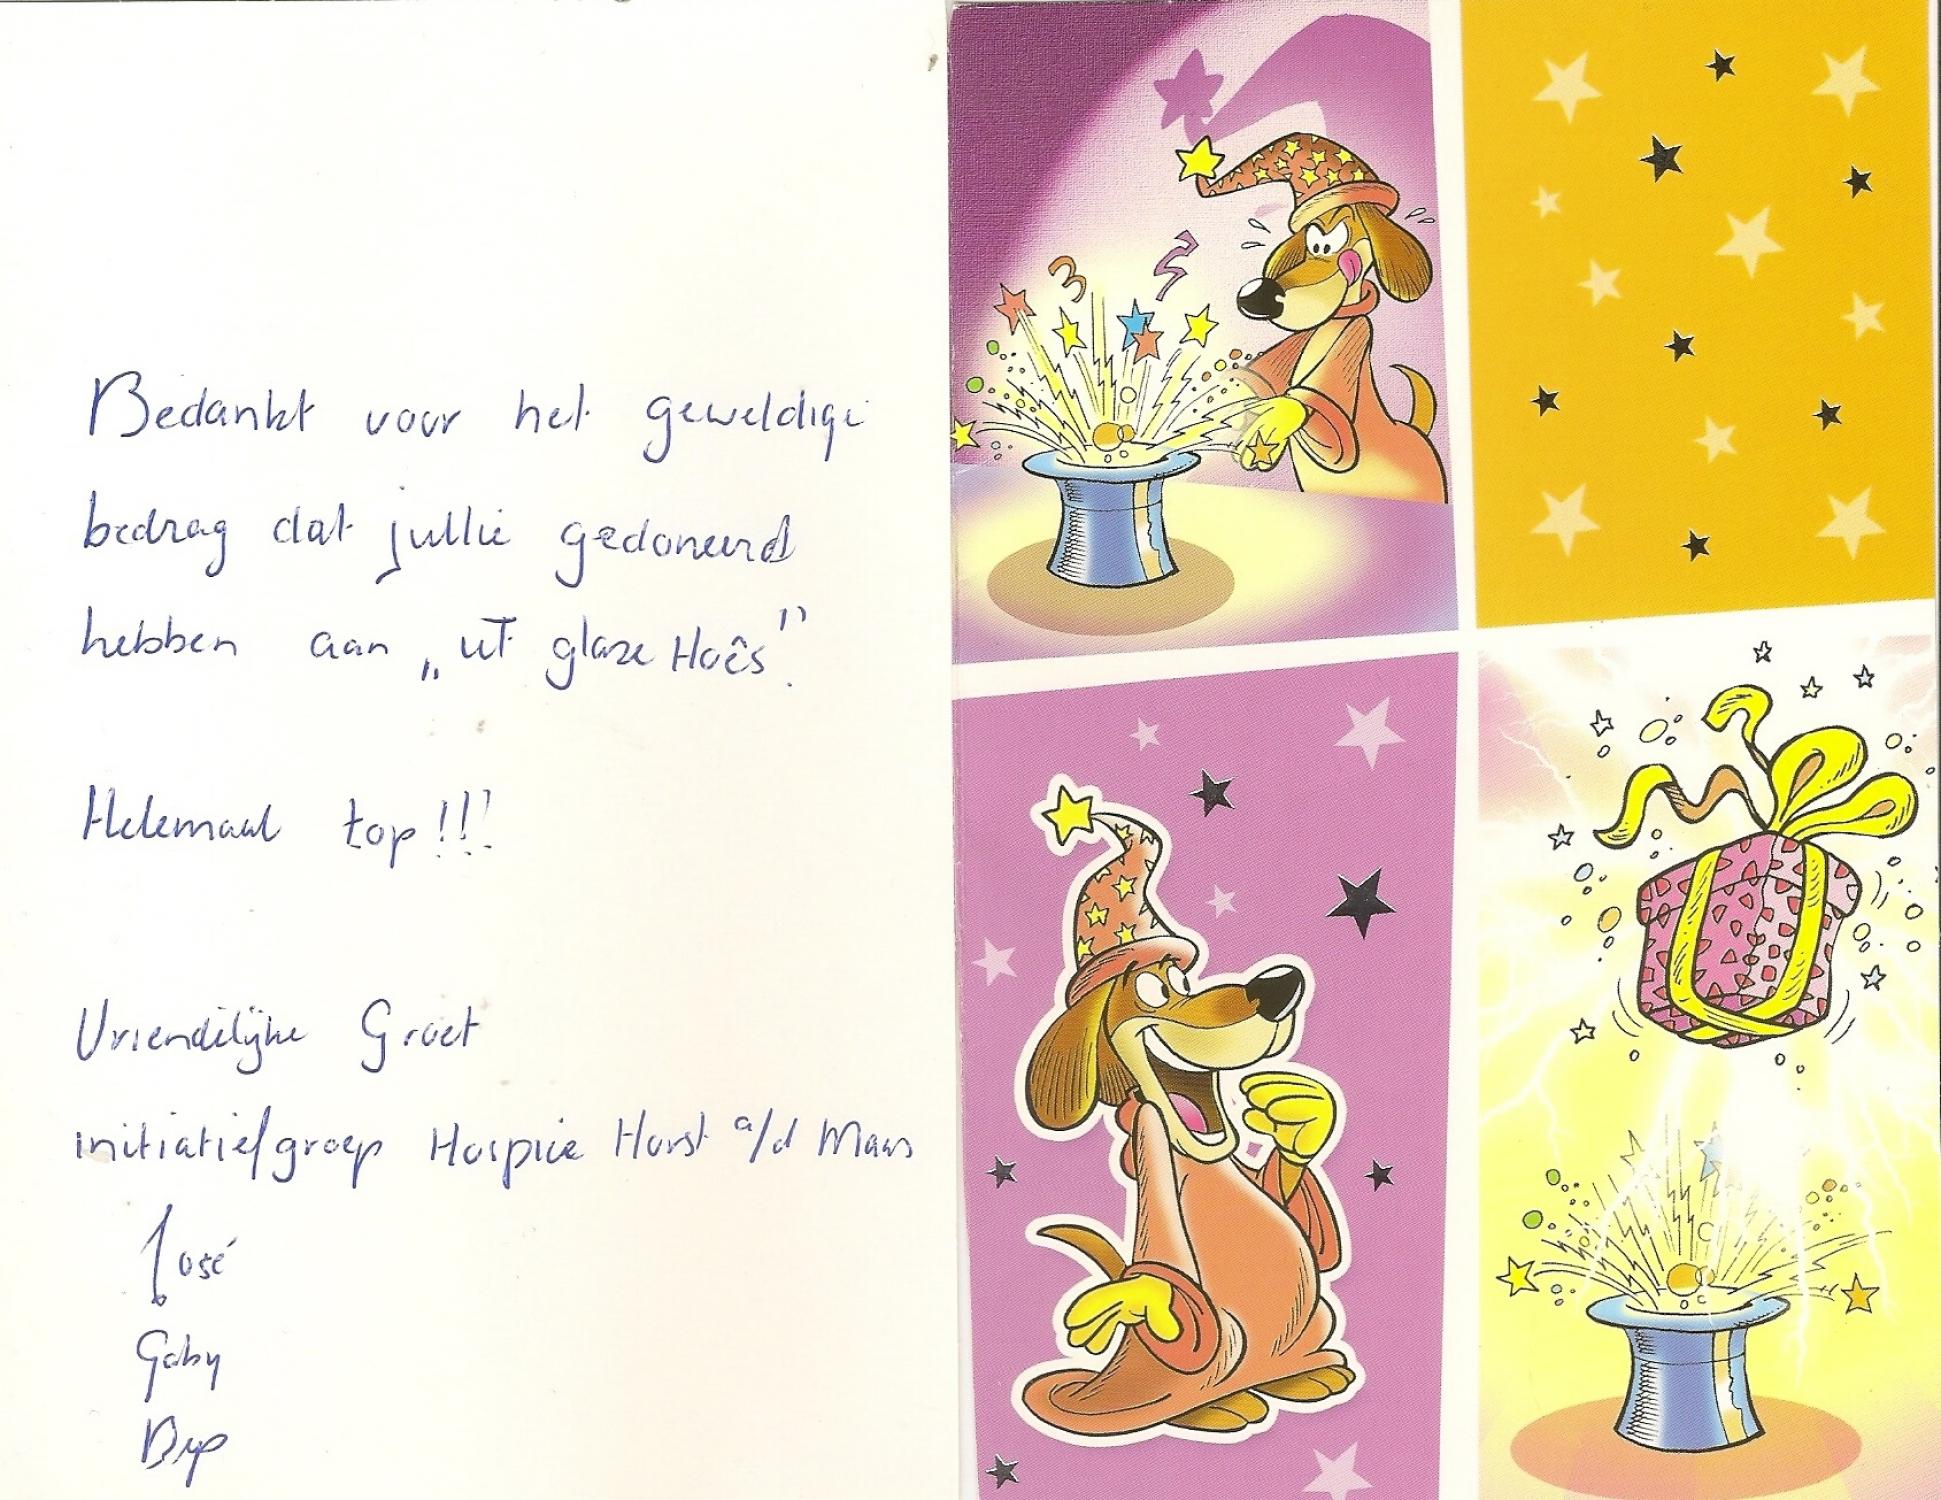 Bedankt voor het geweldige
bedrag dat jullie gedoneerd
hebben aan „ut glaze Hoês”.
Helemaal top!!!
Vriendelijke Groet
initiatiefgroep Hospice Horst a/d Maas
José
Gaby